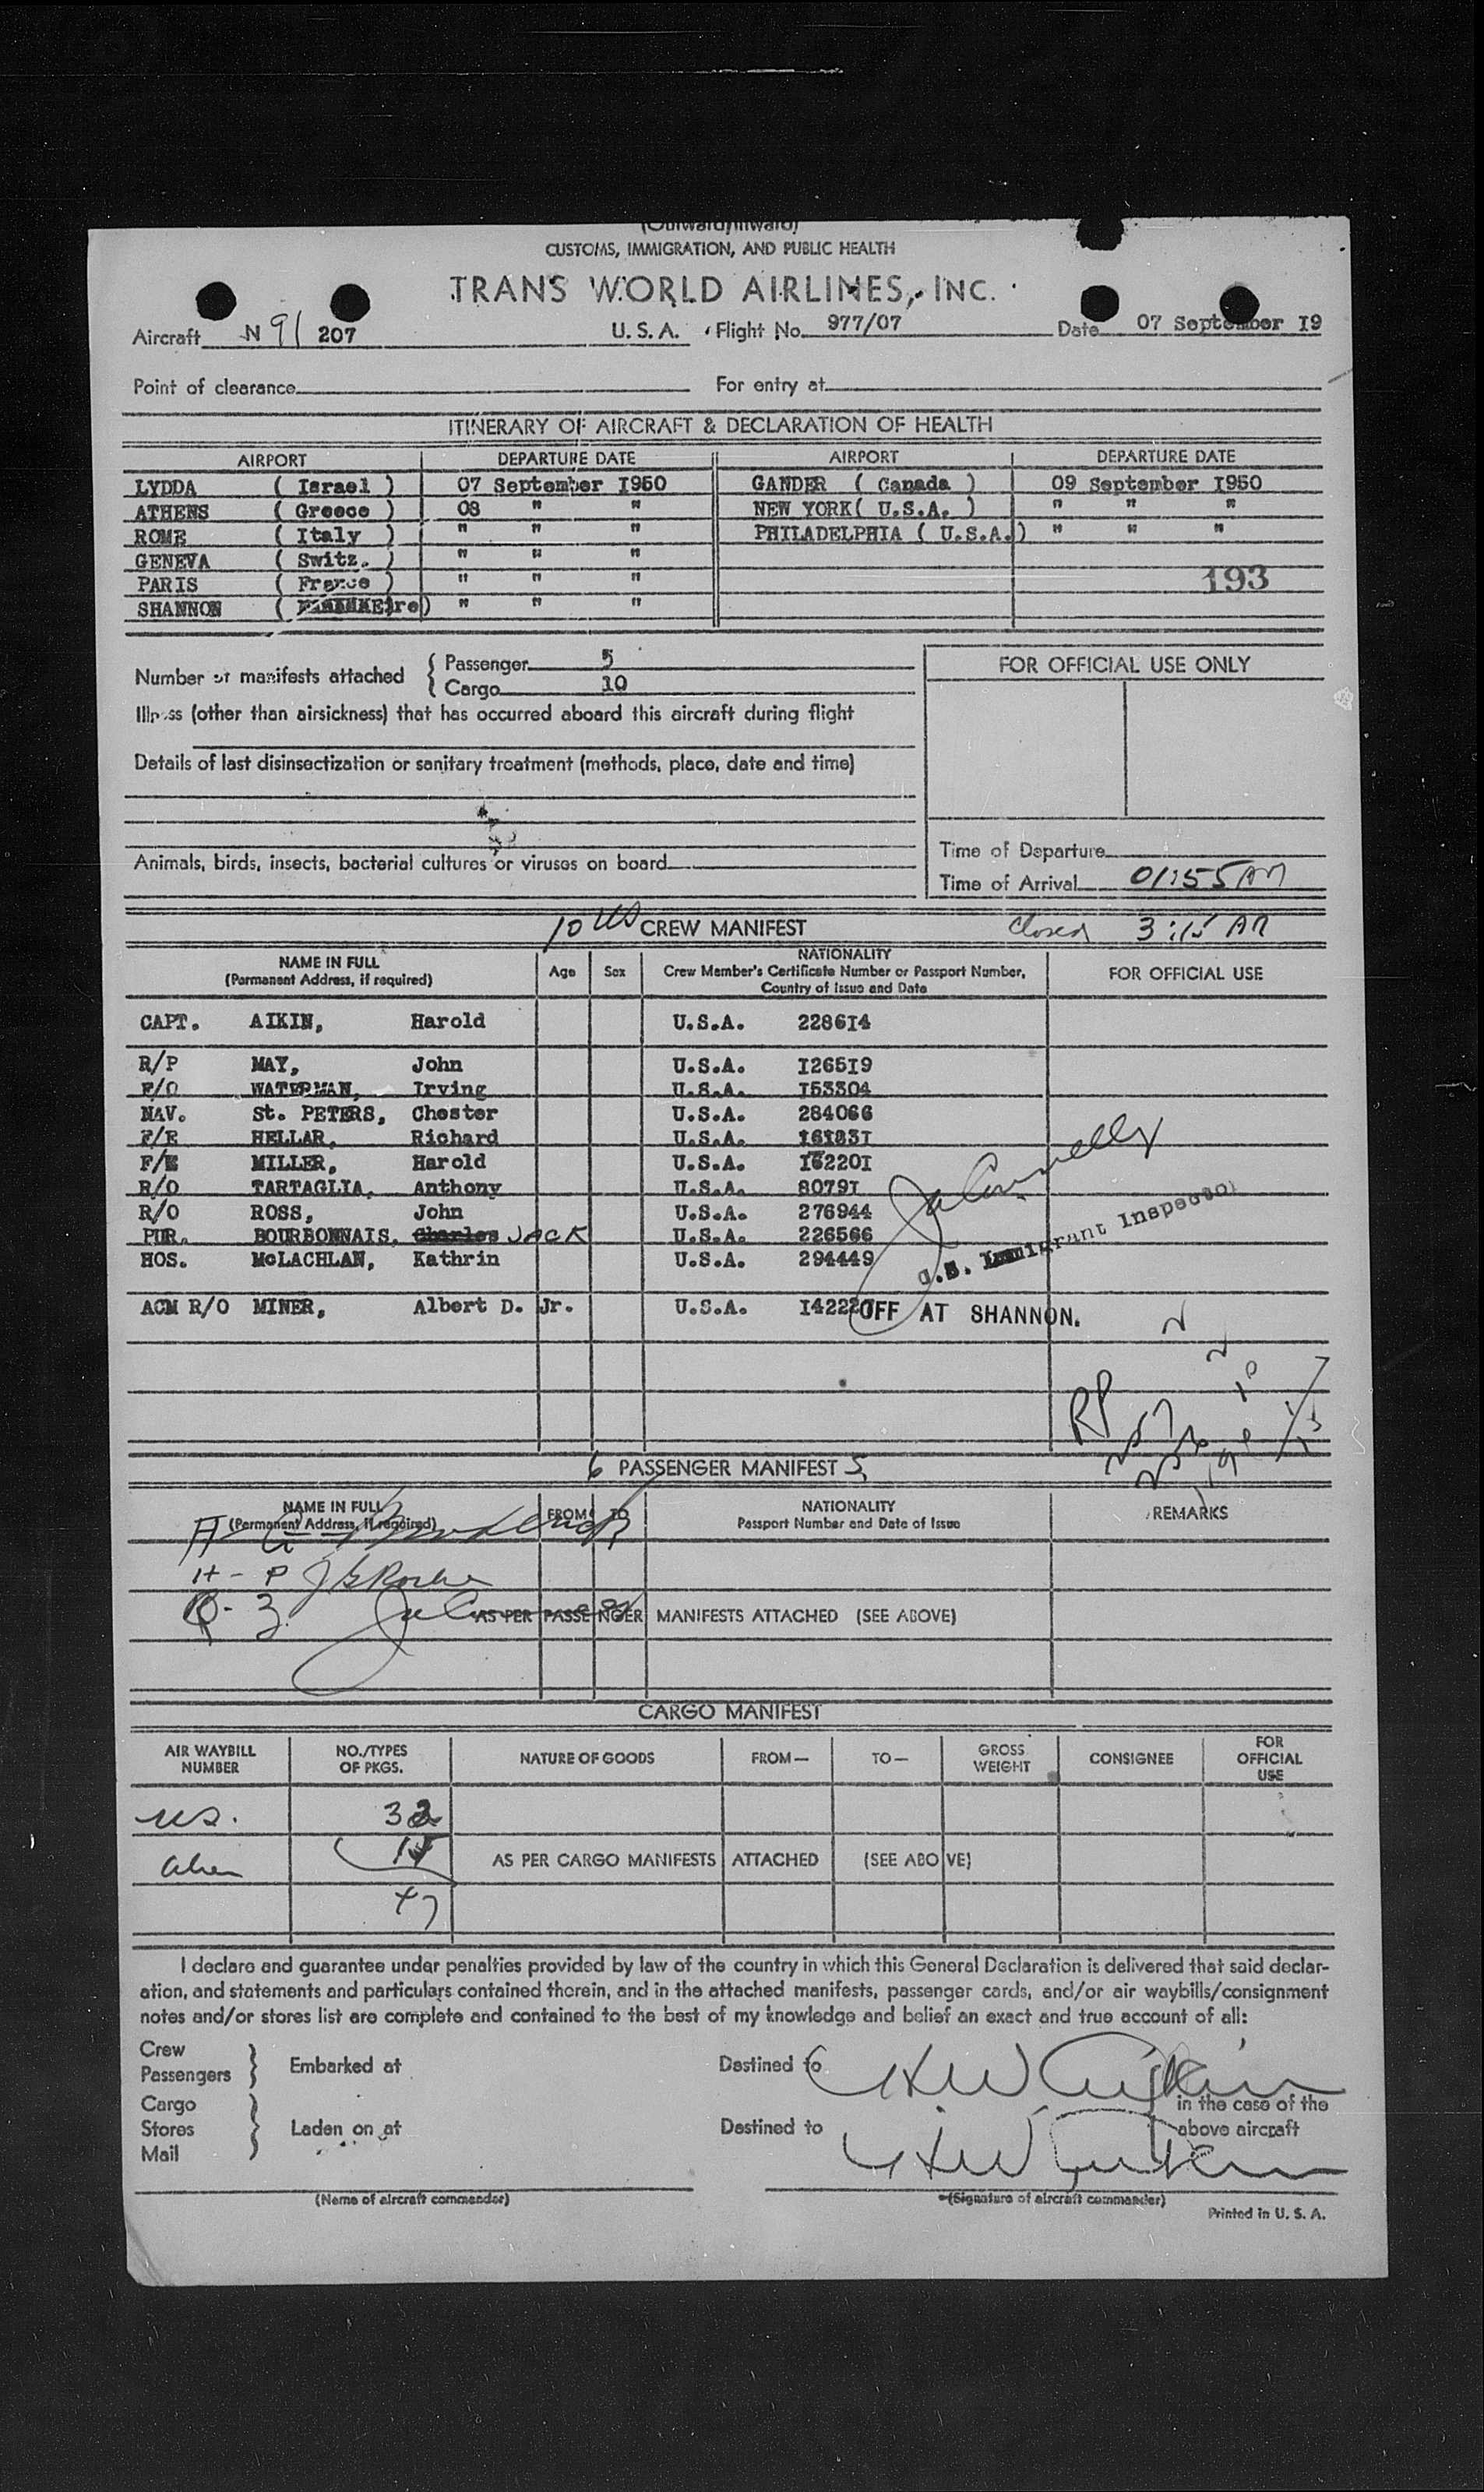 (Outward/Inward)
CUSTOMS, IMMIGRATION, AND PUBLIC HEALTH
TRANS WORLD AIRLINES, INC.
Aircraft N 91 207 U. S. A. Flight No. 977/07 Date 07 September I9
Point of clearance For entry at
ITINERARY OF AIRCRAFT & DECLARATION OF HEALTH
AIRPORT DEPARTURE DATE AIRPORT DEPARTURE DATE
LYDDA ( Israel ) 07 September I950 GANDER ( Canada ) 09 September I950
ATHENS ( Greece ) 08 " " NEW YORK( U.S.A. ) " " "
ROME ( Italy ) " " " PHILADELPHIA ( U.S.A.) " " "
GENEVA ( Switz. ) " " "
PARIS ( France ) " " " 193
SHANNON ( Eire) " " "
Number of manifests attached { Passenger 5
Cargo 10
FOR OFFICIAL USE ONLY
Illness (other than airsickness) that has occurred aboard this aircraft during flight
Details of last disinsectization or sanitary treatment (methods, place, date and time)
Animals, birds, insects, bacterial cultures or viruses on board
Time of Departure
Time of Arrival 01:55 AM
10 US CREW MANIFEST Closed 3:15 AM
NAME IN FULL (Permanent Address, if required) Age Sex NATIONALITY Crew Member's Certificate Number or Passport Number, Country of Issue and Date FOR OFFICIAL USE
CAPT. AIKIN, Harold U.S.A. 2286I4
R/P MAY, John U.S.A. I265I9
F/O WATERMAN, Irving U.S.A. I53304
NAV. St. PETERS, Chester U.S.A. 284066
F/E HELLAR, Richard U.S.A.
F/E MILLER, Harold U.S.A. I6220I
R/O TARTAGLIA, Anthony U.S.A. 8079I
R/O ROSS, John U.S.A. 276944
PUR. BOURBONNAIS, Charles JACK U.S.A. 226566
HOS. McLACHLAN, Kathrin U.S.A. 294449
U.S. Immigrant Inspector
ACM R/O MINER, Albert D. Jr. U.S.A. OFF AT SHANNON.
RP
6 PASSENGER MANIFEST 5
NAME IN FULL (Permanent Address, if required) FROM TO NATIONALITY Passport Number and Date of Issue REMARKS
H - P
AS PER PASSENGER MANIFESTS ATTACHED (SEE ABOVE)
CARGO MANIFEST
AIR WAYBILL NUMBER NO./TYPES OF PKGS. NATURE OF GOODS FROM— TO— GROSS WEIGHT CONSIGNEE FOR OFFICIAL USE
US. 32
Alien 15 AS PER CARGO MANIFESTS ATTACHED (SEE ABOVE)
47
I declare and guarantee under penalties provided by law of the country in which this General Declaration is delivered that said declar-
ation, and statements and particulars contained therein, and in the attached manifests, passenger cards, and/or air waybills/consignment
notes and/or stores list are complete and contained to the best of my knowledge and belief an exact and true account of all:
Crew
Passengers } Embarked at Destined to HW Aikin
Cargo in the case of the
Stores } Laden on at Destined to HW Aikin above aircraft
Mail
(Name of aircraft commander) (Signature of aircraft commander)
Printed in U. S. A.